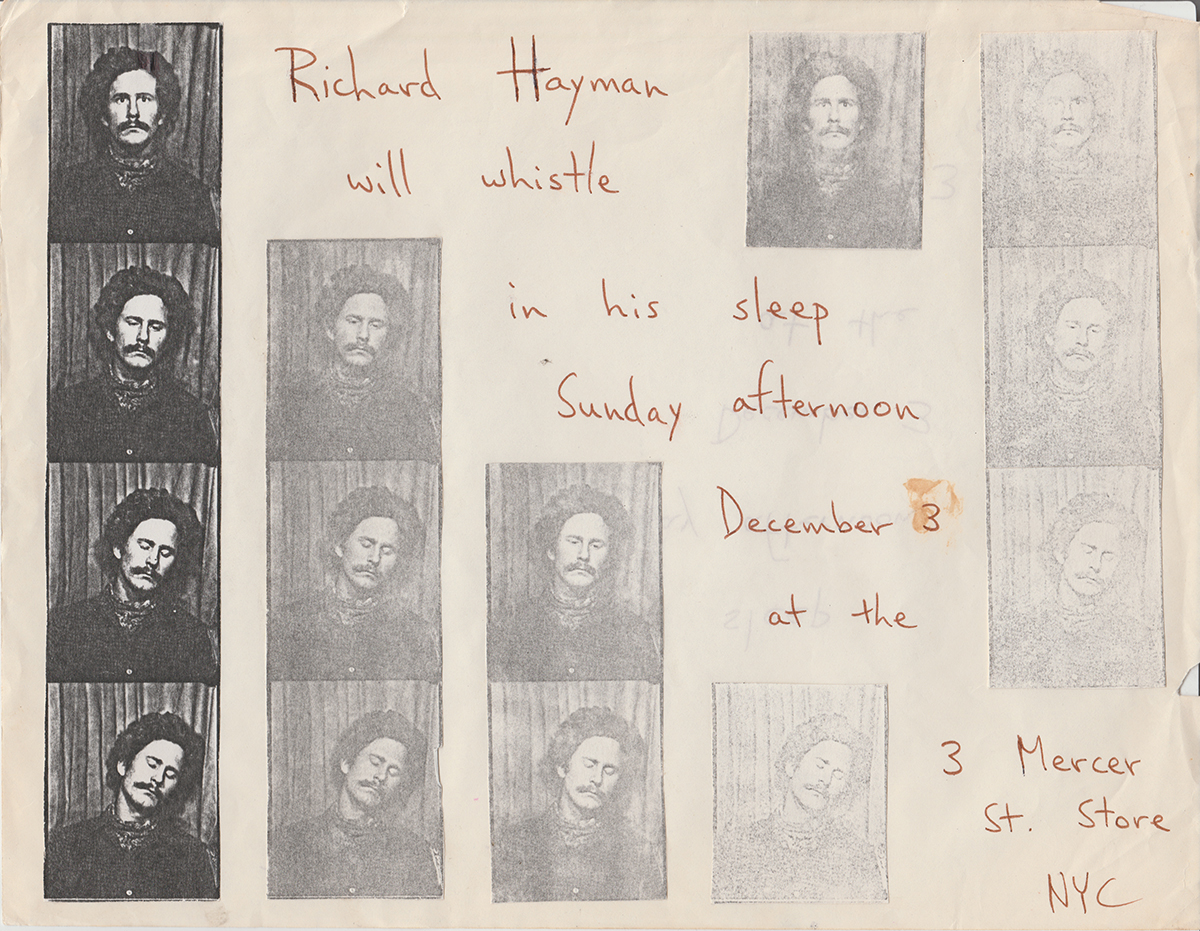 Richard Hayman
will whistle
in his sleep
Sunday afternoon
December 3
at the
3 Mercer
St. Store
NYC